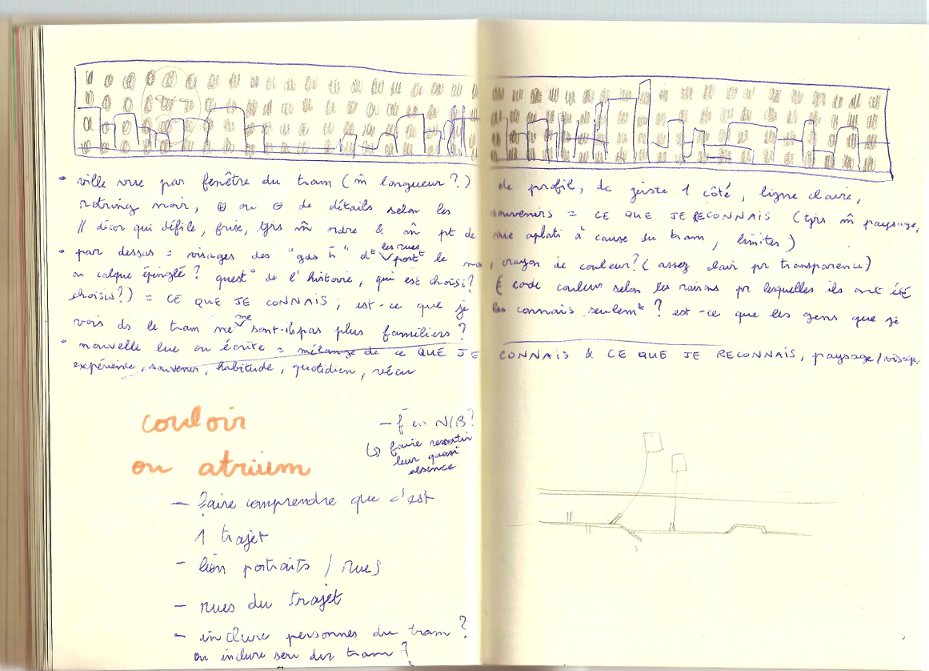 • ville vue par fenêtre du tram (m̂ longueur ?) de profil, de juste 1 côté, ligne claire,
rotring noir, ⊕ ou ⊖ de détails selon les souvenirs = CE QUE JE RECONNAIS (tjrs m̂ paysage,
// décor qui défile, frise, tjrs m̂ ordre & m̂ pt de vue aplati à cause du tram, limites)
• par dessus = visages des "gas à" les rues le , crayon de couleur ? (assez clair pr transparence)
ou calque épinglé ? quest° de l'histoire, qui est choisi ? (code couleur selon les raisons pr lesquelles ils ont été
choisis ?) = CE QUE JE CONNAIS ; est-ce que je les connais seulemt ? est-ce que les gens que je
vois ds le tram ne me sont-ils pas plus familiers ?
• nouvelle lue ou écrite = mélange de ce QUE JE CONNAIS & CE QUE JE RECONNAIS, paysage/visage,
expérience, souvenir, habitude, quotidien, vécu
couloir
ou atrium
— en N/B ?
↳ faire ressortir
leur quasi
absence
— faire comprendre que c'est
1 trajet
— lien portraits / rues
— rues du trajet
— inclure personnes du tram ?
ou inclure son du tram ?